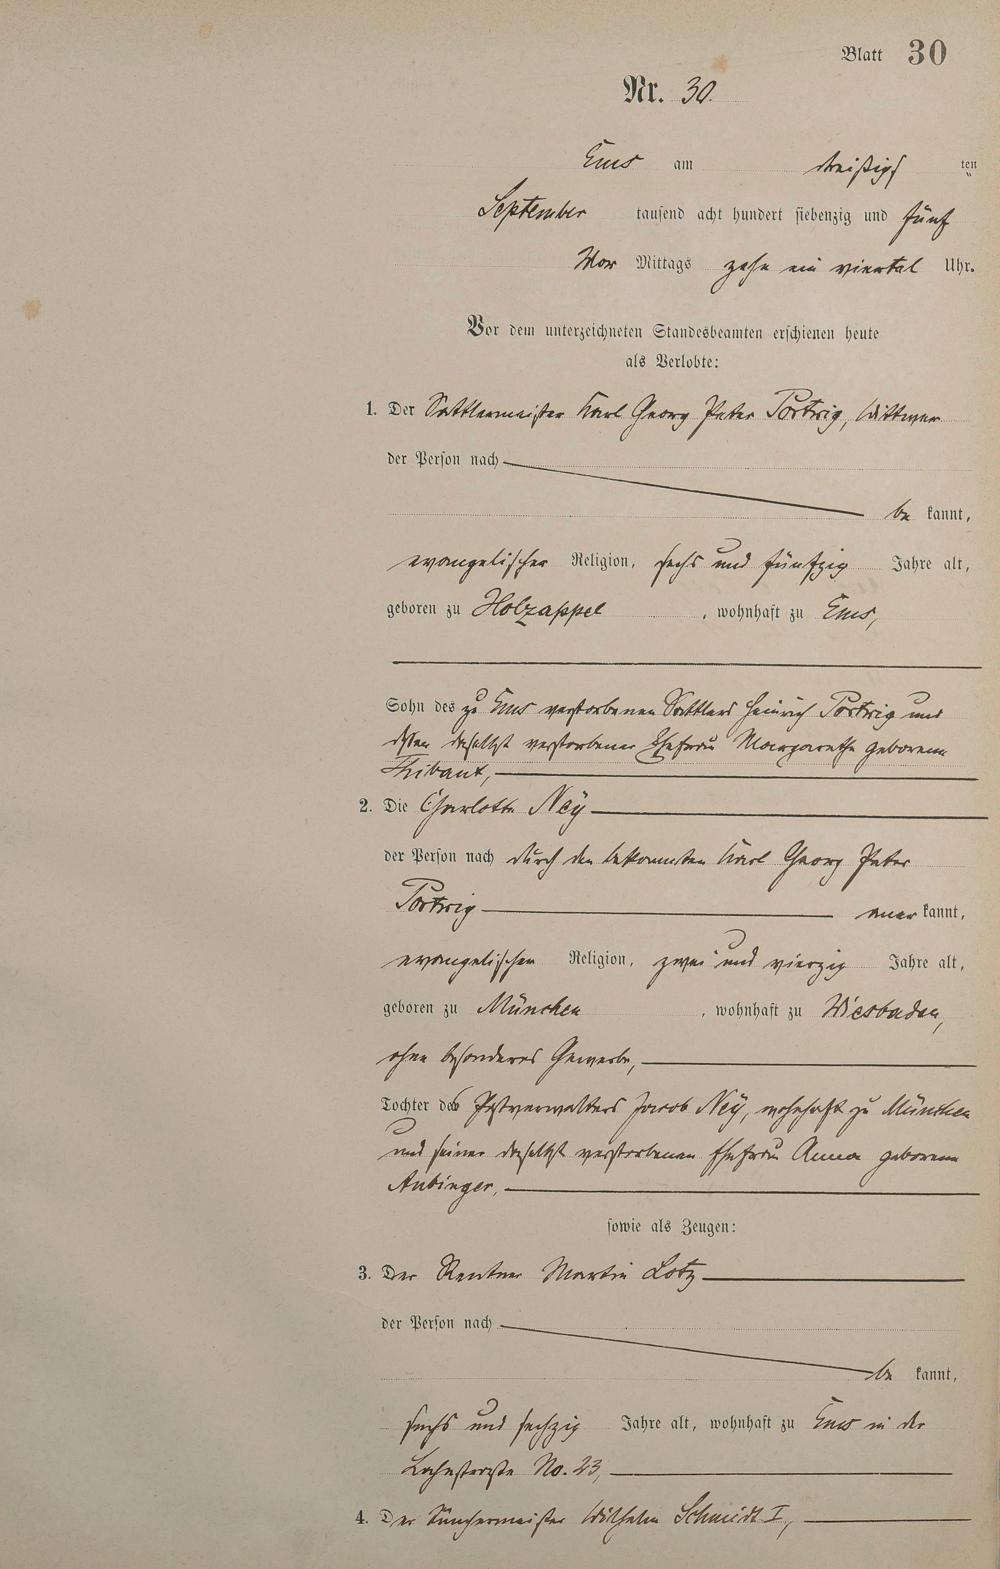 Blatt 30
Nr. 30.
Ems am dreißigs ten
September tausend acht hundert siebenzig und fünf
Vor Mittags zehn ein viertel Uhr.
Vor dem unterzeichneten Standesbeamten erschienen heute
als Verlobte:
1. Der Sattlermeister Karl Georg Peter Portrig, Wittwer
der Person nach
be kannt,
evangelischer Religion, sechs und fünfzig Jahre alt,
geboren zu Holzappel, wohnhaft zu Ems,
Sohn des zu Ems verstorbenen Sattlers Heinrich Portrig und
dessen daselbst verstorbener Ehefrau Margarethe geborene
Thibaut,
2. Die Charlotte Ney
der Person nach durch den bekannten Karl Georg Peter
Portrig aner kannt,
evangelischer Religion, zwei und vierzig Jahre alt,
geboren zu München, wohnhaft zu Wiesbaden,
ohne besonderes Gewerbe,
Tochter des Postverwalters Jacob Ney, wohnhaft zu München
und seiner daselbst verstorbenen Ehefrau Anna geborene
Aubinger,
sowie als Zeugen:
3. Der Rentner Martin Lotz
der Person nach
be kannt,
sechs und sechzig Jahre alt, wohnhaft zu Ems in der
Lahnstraße No. 23,
4. Der Tünchermeister Wilhelm Schmidt I,